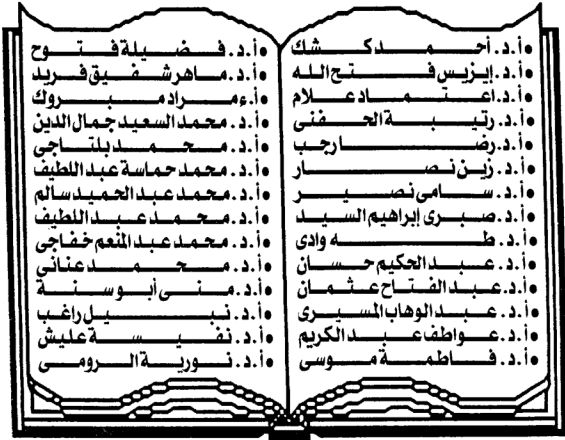 • أ.د. أحمد كشك
• أ.د. إيزيس فتح الله
• أ.د. اعتماد علام
• أ.د. رتيبة الحفنى
• أ.د. رضا رجب
• أ.د. زين نصار
• أ.د. سامى نصير
• أ.د. صبرى إبراهيم السيد
• أ.د. طه وادى
• أ.د. عبد الحكيم حسان
• أ.د. عبد الفتاح عثمان
• أ.د. عبد الوهاب المسيرى
• أ.د. عواطف عبد الكريم
• أ.د. فاطمة موسى
• أ.د. فضيلة فتوح
• أ.د. ماهر شفيق فريد
• أ. مراد مبروك
• أ.د. محمد السعيد جمال الدين
• أ.د. محمد بلتاجى
• أ.د. محمد حماسة عبد اللطيف
• أ.د. محمد عبد الحميد سالم
• أ.د. محمد عبد اللطيف
• أ.د. محمد عبد المنعم خفاجى
• أ.د. محمد عنانى
• أ.د. منى أبو سنة
• أ.د. نبيل راغب
• أ.د. نفيسة عليش
• أ.د. نورية الرومى